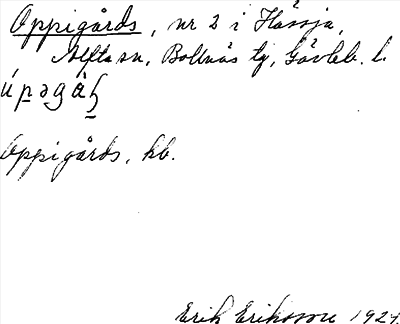 Oppigårds, nr 2 i Hässja,
Alfta sn, Bollnäs tg, Gävleb. l.
Oppigårds, kb.
Erik Eriksson 1927.